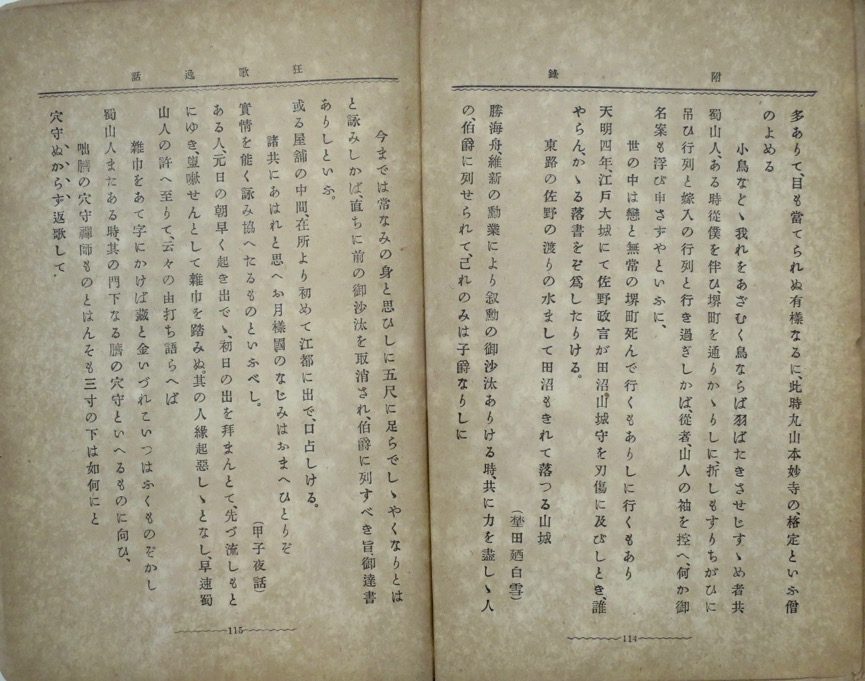 附錄
多ありて、目も當てられぬ有樣なるに、此時丸山本妙寺の、格定といふ僧
のよめる
小鳥などゝ我れをあざむく鳥ならば羽ばたきさせじすゞめ者共
蜀山人、ある時從僕を伴ひ、堺町を通りかゝりしに、折しもすりちがひに
吊ひ行列と嫁入の行列と行き過ぎしかば、從者、山人の袖を控へ、何か御
名案も浮び申さずやといふに、
世の中は戀と無常の堺町死んで行くもありしに行くもあり
天明四年、江戸大城にて佐野政言が田沼山城守を刃傷に及びしとき、誰
やらん、かゝる落書をぞ爲したりける。
東路の佐野の渡りの水まして田沼もきれて落つる山城
(埜田廼白雪)
勝海舟維新の勳業により叙勳の御沙汰ありける時、共に力を盡しゝ人
の、伯爵に列せられて、己れのみは子爵なりしに
114
狂歌逸話
今までは常なみの身と思ひしに五尺に足らでしゝやくなりとは
と詠みしかば直ちに前の御沙汰を取消され、伯爵に列すべき旨御達書
ありしといふ。
或る屋舖の中間在所より初めて江都に出で、口占しける。
諸共にあはれと思へお月樣國のなじみはおまへひとりぞ
實情を能く詠み協へたるものといふべし。
(甲子夜話)
ある人、元日の朝早く起き出でゝ、初日の出を拜まんとて、先づ流しもと
にゆき、盥嗽せんとして雜巾を踏みぬ。其の人緣起惡しゝとなし、早速蜀
山人の許へ至りて、云々の由打ち語らへば
雜巾をあて字にかけば藏と金いづれこいつはふくものぞかし
蜀山人またある時其の門下なる臍の穴守といへるものに向ひ、
咄臍の穴守禪師ものとはんそも三寸の下は如何にと
穴守ぬからず返歌して、
115